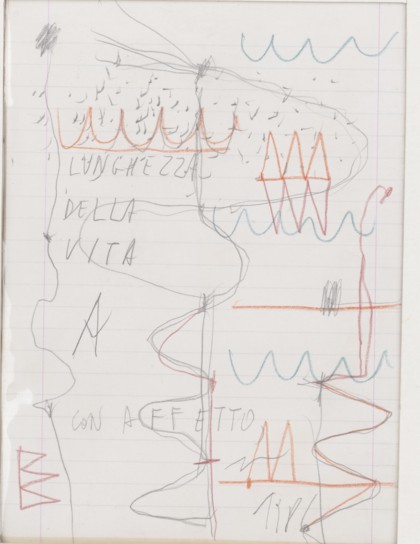 LUNGHEZZA
DELLA
VITA
A
CON AFFETTO